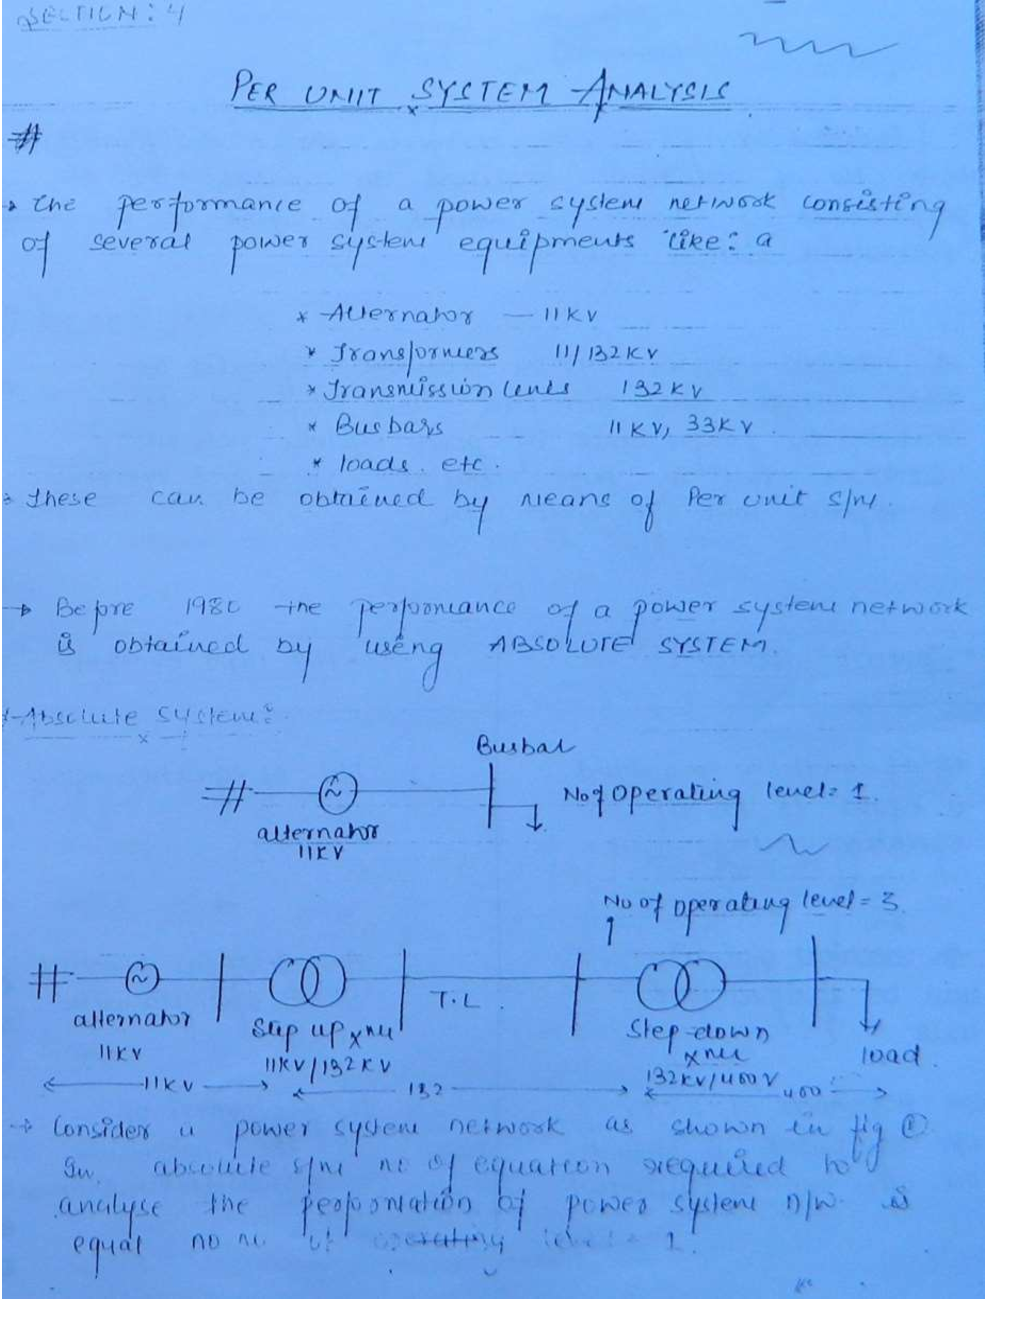 SECTION: 4
PER UNIT SYSTEM ANALYSIS
#
→ the performance of a power system network consisting
of several power system equipments like: a
* Alternator — 11KV
* Transformers 11/132KV
* Transmission lines 132KV
* Busbars 11KV, 33KV.
* loads. etc.
→ these can be obtained by means of Per unit s/m.
→ Before 1980 the performance of a power system network
is obtained by using ABSOLUTE SYSTEM.
Absolute system:
Busbar
No of Operating level= 1.
alternator
11KV
No of operating level = 3.
T.L.
alternator
11KV
Step up xmer
11KV/132KV
Step-down
xmer
132KV/400V
load.
11KV
132
400
→ Consider a power system network as shown in fig
In absolute s/m no of equation required to
analyse the performation of power system n/w is
equal no of operating level = 1.